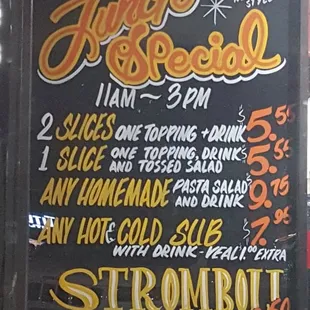 Lunch
Special
11AM ~ 3PM
2 SLICES ONE TOPPING + DRINK $5.
1 SLICE ONE TOPPING, DRINK $5.
AND TOSSED SALAD
ANY HOMEMADE PASTA SALAD $9.75
AND DRINK
ANY HOT & COLD SUB $7.
WITH DRINK - VEAL 1.00 EXTRA
STROMBOLI